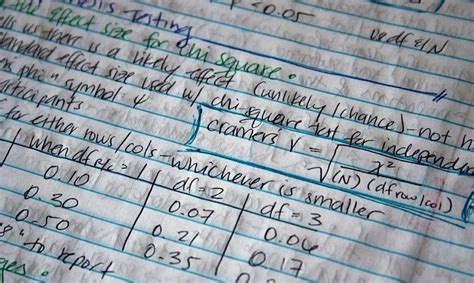 p < 0.05
esis testing
use df & N
effect size for chi square.
us there is a likely effect (unlikely /chance) - not
standard effect size used w/ chi-square test for independ
phi" symbol φ
cramers V = √ χ² / (N) (df row/col)
articipants
for either rows/cols - whichever is smaller
when df = 1 | df = 2 | df = 3
0.10 | 0.07 | 0.06
0.30 | 0.21 | 0.17
0.50 | 0.35 | 0.
to report